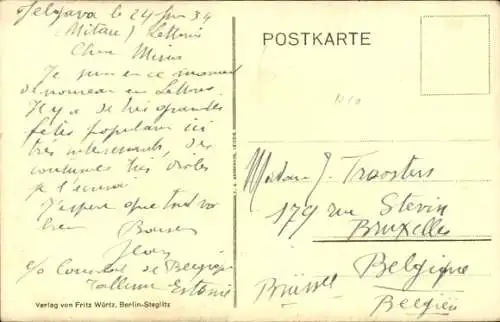 Jelgava le 24 Jun 34
(Mitau) Lettonie
Je suis en ce moment
de nouveau en Lettonie
Il y a de très grandes
fêtes populaires ici
très intéressants, des
costumes très drôles
J'espère que tout va
bien
Jean
c/o Consulat de Belgique
Tallinn Estonie
Verlag von Fritz Würtz, Berlin-Steglitz
POSTKARTE
Madame J. Troosters
179 rue Stevin
Bruxelles
Belgique
Brüssel
Belgien